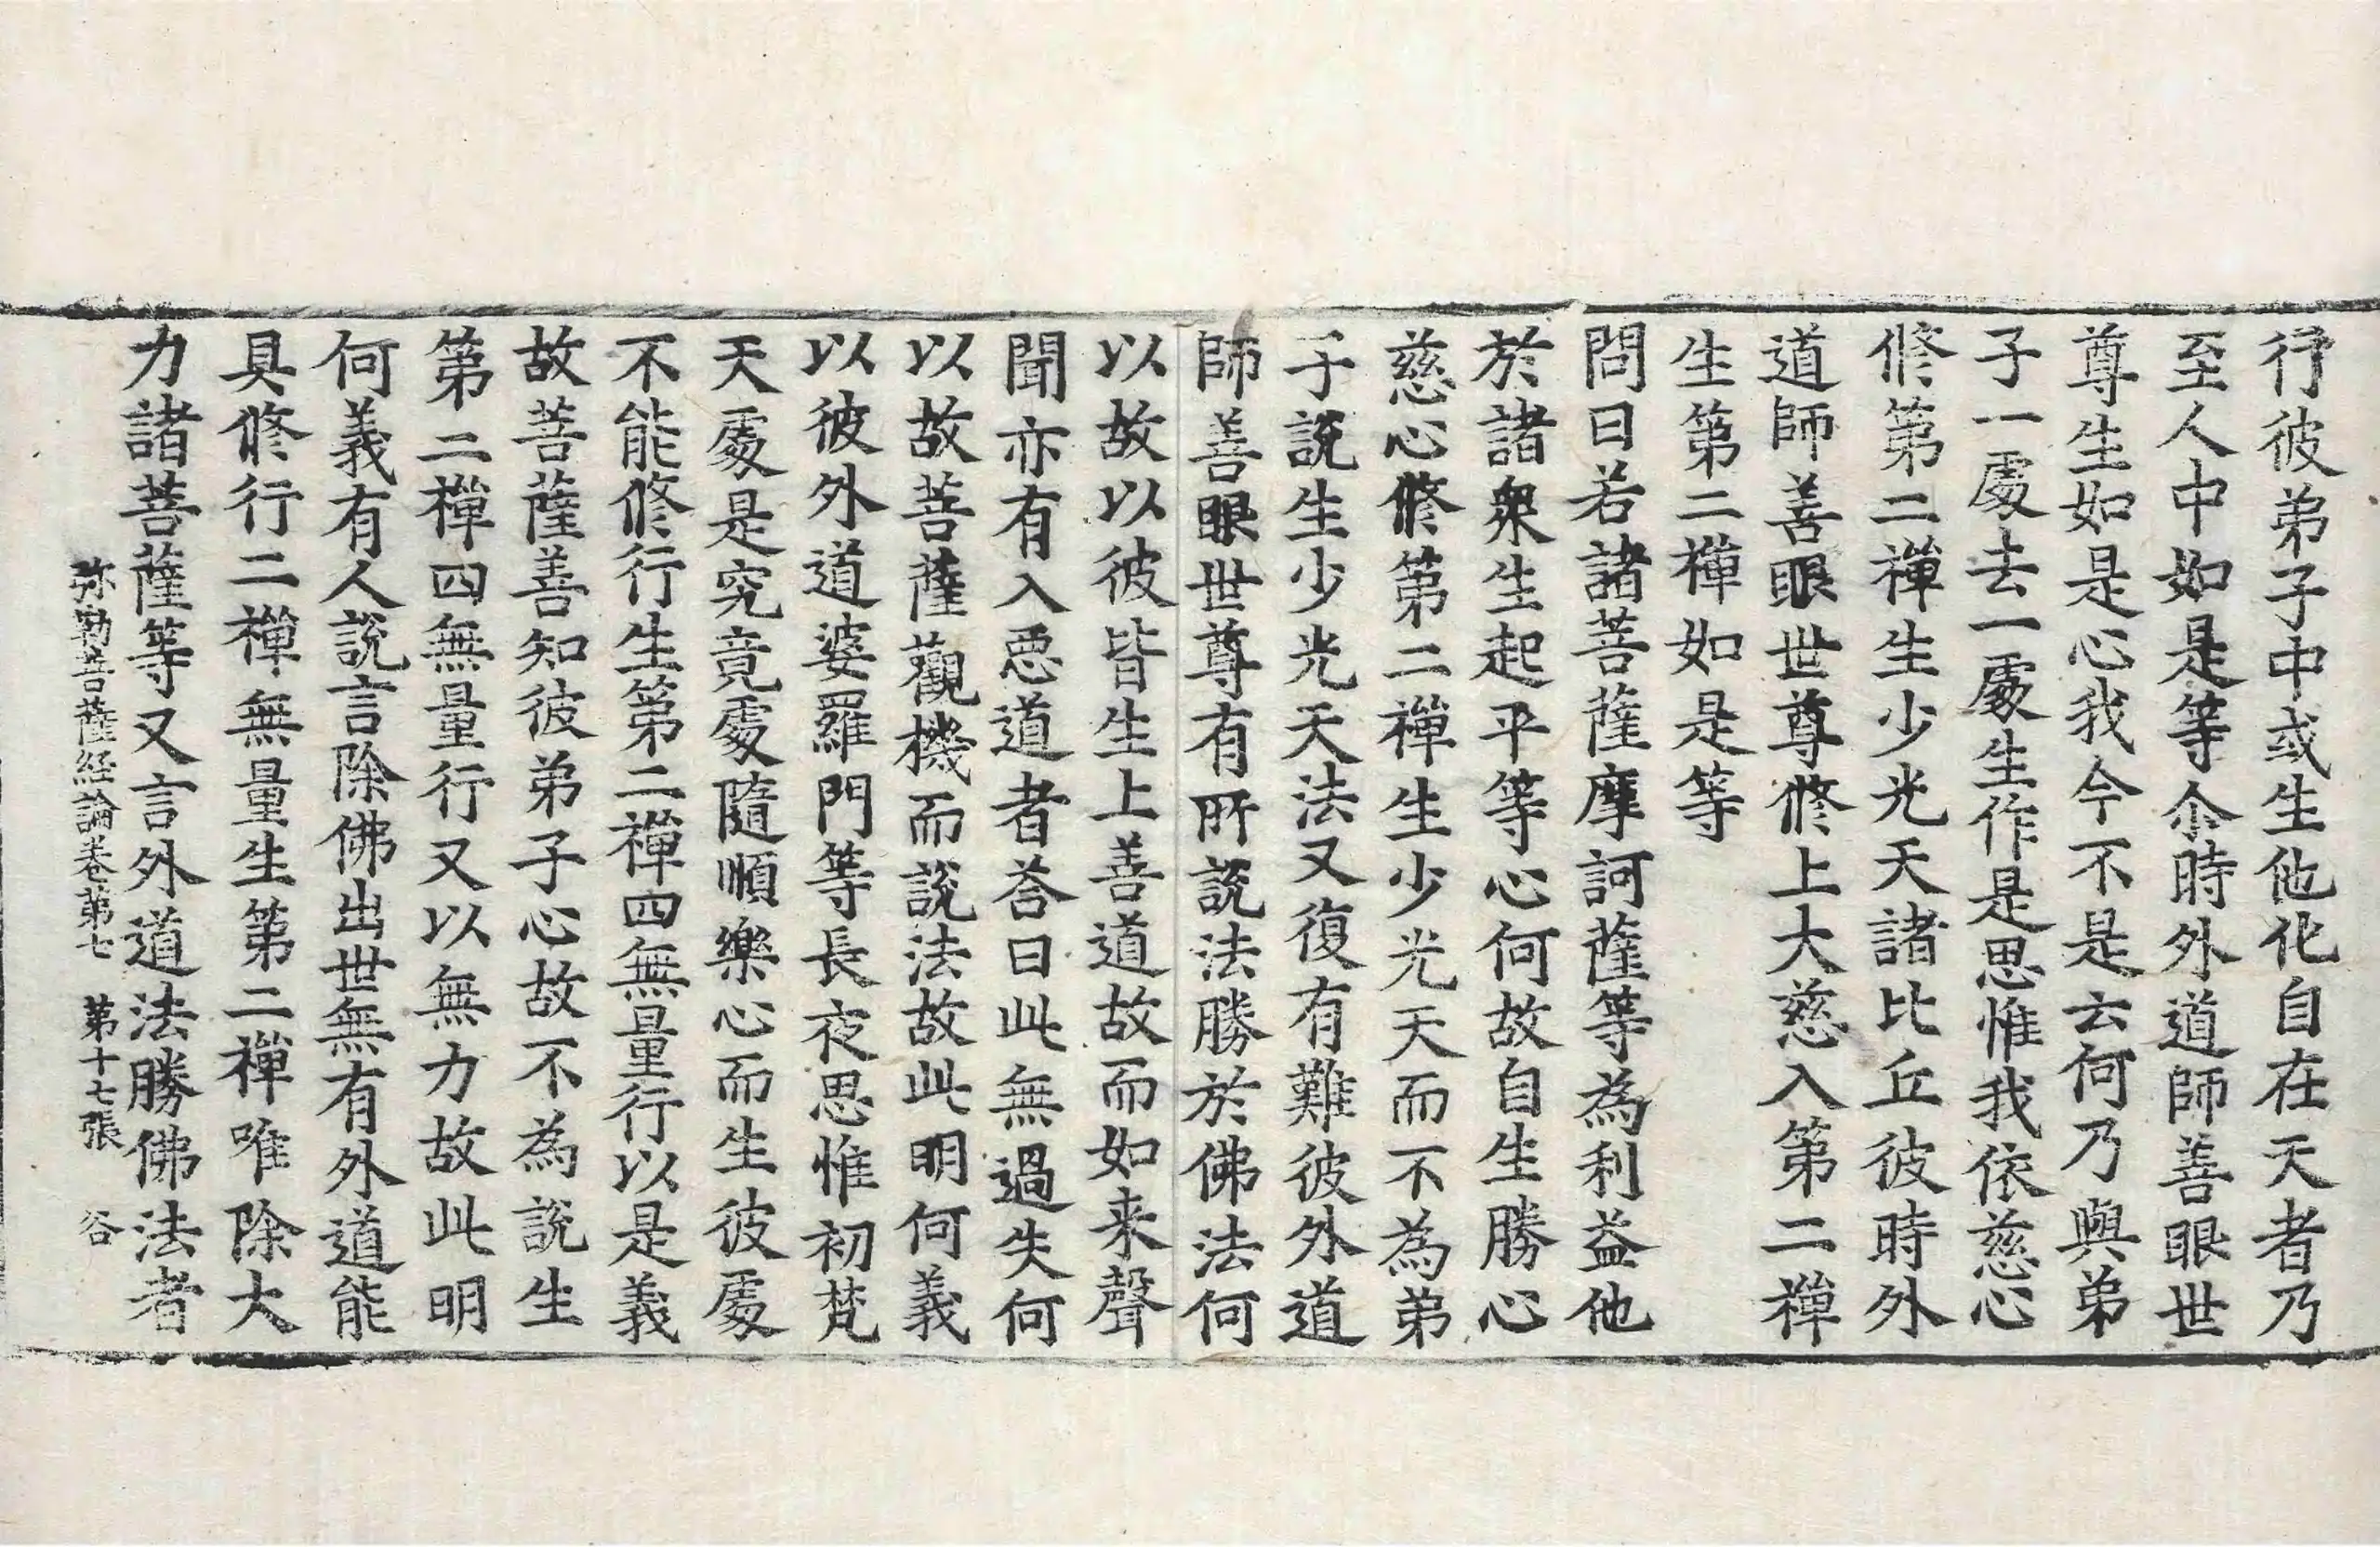 行彼弟子中或生他化自在天者乃
至人中如是等尒時外道師善眼世
尊生如是心我今不是云何乃與弟
子一處去一處生作是思惟我依慈心
修第二禪生少光天諸比丘彼時外
道師善眼世尊修上大慈入第二禪
生第二禪如是等
問曰若諸菩薩摩訶薩等為利益他
於諸衆生起平等心何故自生勝心
慈心修第二禪生少光天而不為弟
子説生少光天法又復有難彼外道
師善眼世尊有所説法勝於佛法何
以故以彼皆生上善道故而如来聲
聞亦有入惡道者荅曰此無過失何
以故菩薩觀機而説法故此明何義
以彼外道婆羅門等長夜思惟初梵
天處是究竟處隨順樂心而生彼處
不能修行生第二禪四無量行以是義
故菩薩善知彼弟子心故不為説生
第二禪四無量行又以無力故此明
何義有人説言除佛出世無有外道能
具修行二禪無量生第二禪唯除大
力諸菩薩等又言外道法勝佛法者
弥勒菩薩経論卷第七 第十七張 谷